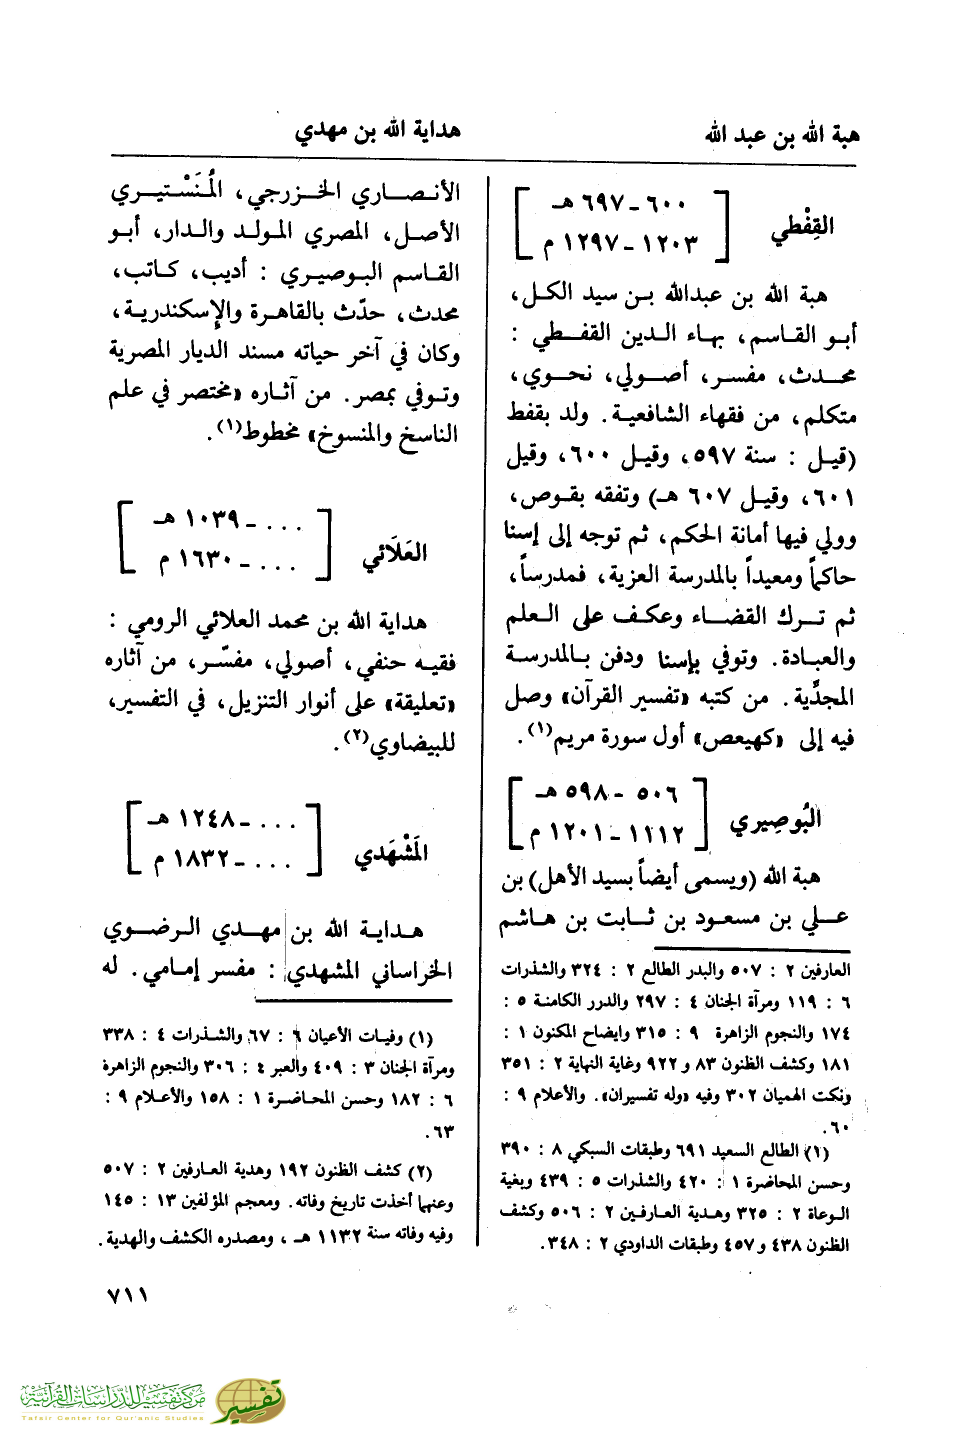 هبة الله بن عبد الله
هداية الله بن مهدي
القِفْطي
٦٠٠ ـ ٦٩٧ هـ
١٢٠٣ ـ ١٢٩٧ م
هبة الله بن عبدالله بـن سيد الكل،
أبـو القـاسم، بهـاء الـدين القفـطي :
محـدث، مفسـر، أصـولي، نحـوي،
متكلم، من فقهاء الشافعيـة. ولد بقفط
(قيـل : سنة ٥٩٧، وقيـل ٦٠٠، وقيل
٦٠١، وقيـل ٦٠٧ هـ) وتفقه بقـوص،
وولي فيها أمانة الحكم، ثم توجه إلى إسنا
حاكماً ومعيداً بالمدرسة العزية، فمدرساً،
ثم تـرك القضـاء وعكـف على الـعلم
والعبـادة. وتوفي بإسنا ودفن بـالمدرسـة
المجدَّية. من كتبه «تفسير القرآن» وصل
فيه إلى «كهيعص» أول سورة مريم(١).
البُوصِيري
٥٠٦ ـ ٥٩٨ هـ
١١١٢ ـ ١٢٠١ م
هبة الله (ويسمى أيضاً بسيد الأهل) بن
عـلي بن مسعـود بن ثـابت بن هـاشم
العارفين ٢ : ٥٠٧ والبدر الطالع ٢ : ٣٢٤ والشذرات
٦ : ١١٩ ومرآة الجنان ٤ : ٢٩٧ والدرر الكامنـة ٥ :
١٧٤ والنجوم الزاهرة ٩ : ٣١٥ وايضاح المكنون ١ :
١٨١ وكشف الظنون ٨٣ و ٩٢٢ وغاية النهاية ٢ : ٣٥١
ونكت الهميان ٣٠٢ وفيه «وله تفسيران». والأعلام ٩ :
٦٠.
(١) الطالع السعيد ٦٩١ وطبقات السبكي ٨ : ٣٩٠
وحسن المحاضرة ١ : ٤٢٠ والشذرات ٥ : ٤٣٩ وبغية
الـوعاة ٢ : ٣٢٥ وهـدية العـارفـين ٢ : ٥٠٦ وكشف
الظنون ٤٣٨ و ٤٥٧ وطبقات الداودي ٢ : ٣٤٨.
الأنـصـاري الخـزرجي، المُنَسْتـيـري
الأصـل، المصري المـولـد والـدار، أبـو
القـاسم البـوصيري : أديب، كـاتب،
محدث، حدّث بالقاهرة والإسكندريـة،
وكان في آخر حياته مسند الديار المصرية
وتـوفي بمصر. من آثـاره «مختصر في علم
الناسخ والمنسوخ» مخطوط(١).
العَلَائي
... ـ ١٠٣٩ هـ
... ـ ١٦٣٠ م
هداية الله بن محمد العلائي الرومي :
فقيـه حنفي، أصولي، مفسّر، من آثاره
«تعليقة» على أنوار التنزيل، في التفسير،
للبيضاوي(٢).
المَشْهَدي
... ـ ١٢٤٨ هـ
... ـ ١٨٣٢ م
هـدايـة الله بن مهـدي الـرضـوي
الخراساني المشهدي : مفسر إمـامي. له
(١) وفيـات الأعيـان ٦ : ٦٧ والشـذرات ٤ : ٣٣٨
ومرآة الجنان ٣ : ٤٠٩ والعبر ٤ : ٣٠٦ والنجوم الزاهرة
٦ : ١٨٢ وحسن المحاضـرة ١ : ١٥٨ والأعـلام ٩ :
٦٣.
(٢) كشف الظنون ١٩٢ وهدية العـارفين ٢ : ٥٠٧
وعنهما أخذت تاريخ وفاته. ومعجم المؤلفين ١٣ : ١٤٥
وفيه وفاته سنة ١١٣٢ هـ، ومصدره الكشف والهدية.
٧١١
مركز تفسير للدراسات القرآنية
Tafsir Center for Qur'anic Studies
تفسير